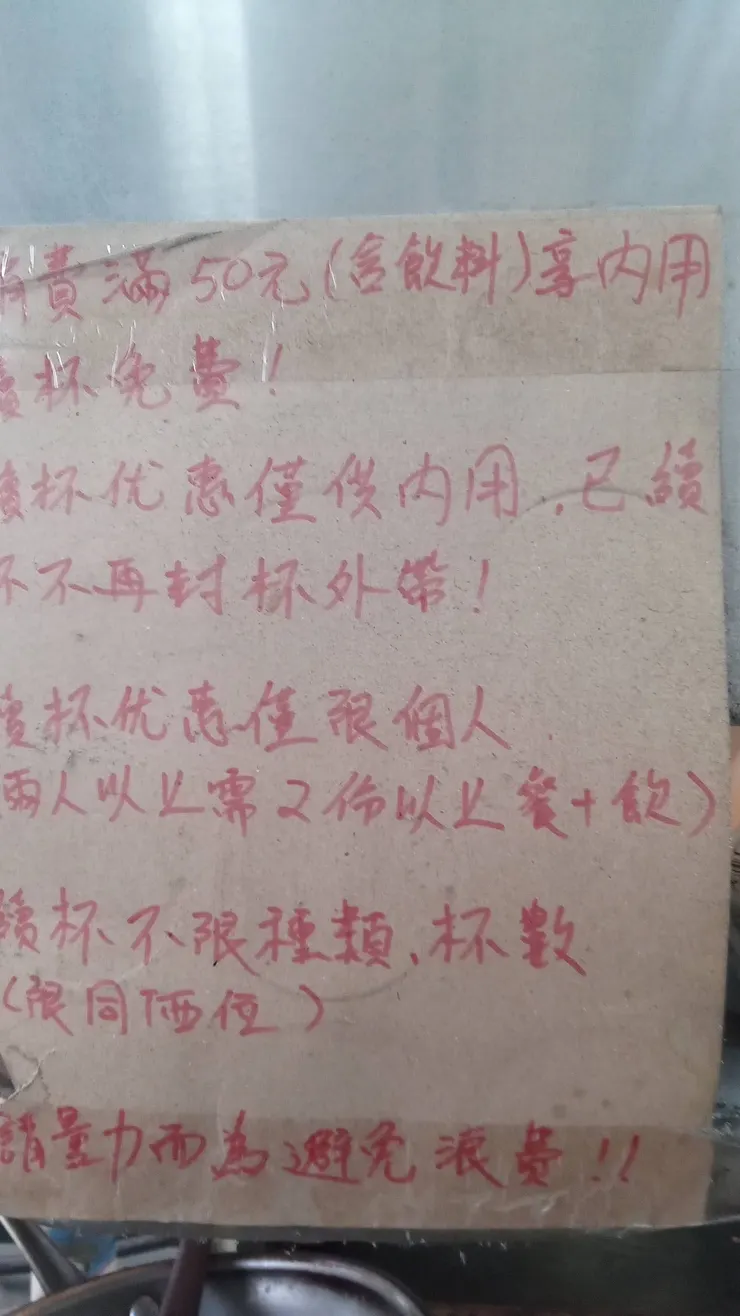 消費滿50元(含飲料)享內用
續杯免費!
續杯优惠僅供內用,已續
杯不再封杯外帶!
續杯优惠僅限個人
兩人以上需2份以上餐+飲)
續杯不限種類、杯數
(限同価位)
請量力而為避免浪費!!